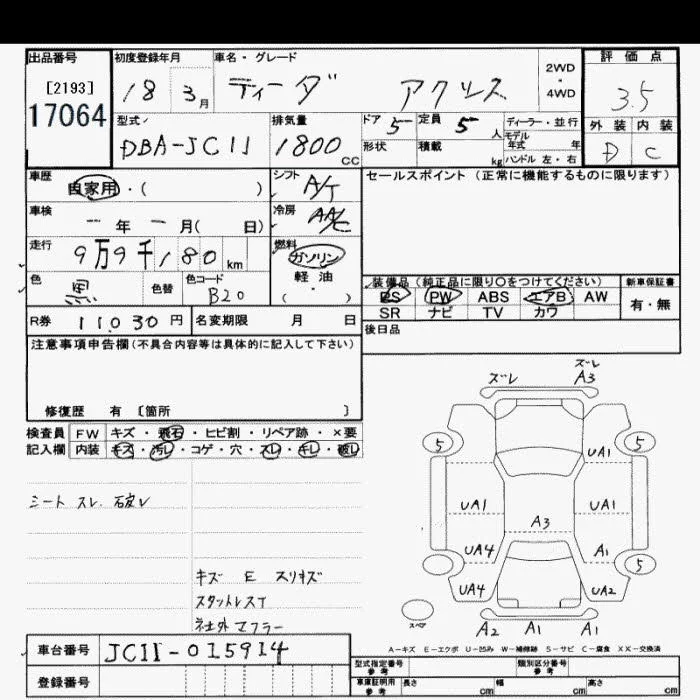 出品番号 初度登録年月 車名・グレード 評価点
[2193] 18 3月 ティーダ アクシス 2WD・4WD 3.5
17064
型式 排気量 ドア 定員 ディーラー・並行 外装 内装
DBA-JC11 1800cc 5 5人 モデル年式 年 D C
形状 積載 kg ハンドル 左・右
車歴 シフト セールスポイント (正常に機能するものに限ります)
自家用・( ) A/T
車検 冷房
一年 一月( 日) AAC
走行 燃料
9万9千180km ガソリン
色 色替 色コード 軽油 装備品 (純正品に限り○をつけてください) 新車保証書
黒 B20 ・( ) PS PW ABS エアB AW 有・無
SR ナビ TV カワ
R券 11,030円 名変期限 月 日 後日品
注意事項申告欄(不具合内容等は具体的に記入して下さい)
修復歴 有 [箇所 ]
検査員 FW キズ・飛石・ヒビ割・リペア跡・×要
記入欄 内装 キズ・汚レ・コゲ・穴・スレ・キレ・破レ
ズレ
ズレ A3
5 5
UA1
シート スレ
UA1 UA1
A3
UA4 A1
5
UA4 UA2
キズ E スリキズ
スタットレスT
社外マフラー
スペア
A2 A1 A1
A-キズ E-エクボ U-凹み W-補修跡 S-サビ C-腐食 XX-交換済
車台番号 JC11-015914
登録番号
型式指定番号 参考 類別区分番号 参考
車庫証明用 参考 長さ cm 幅 cm 高さ cm